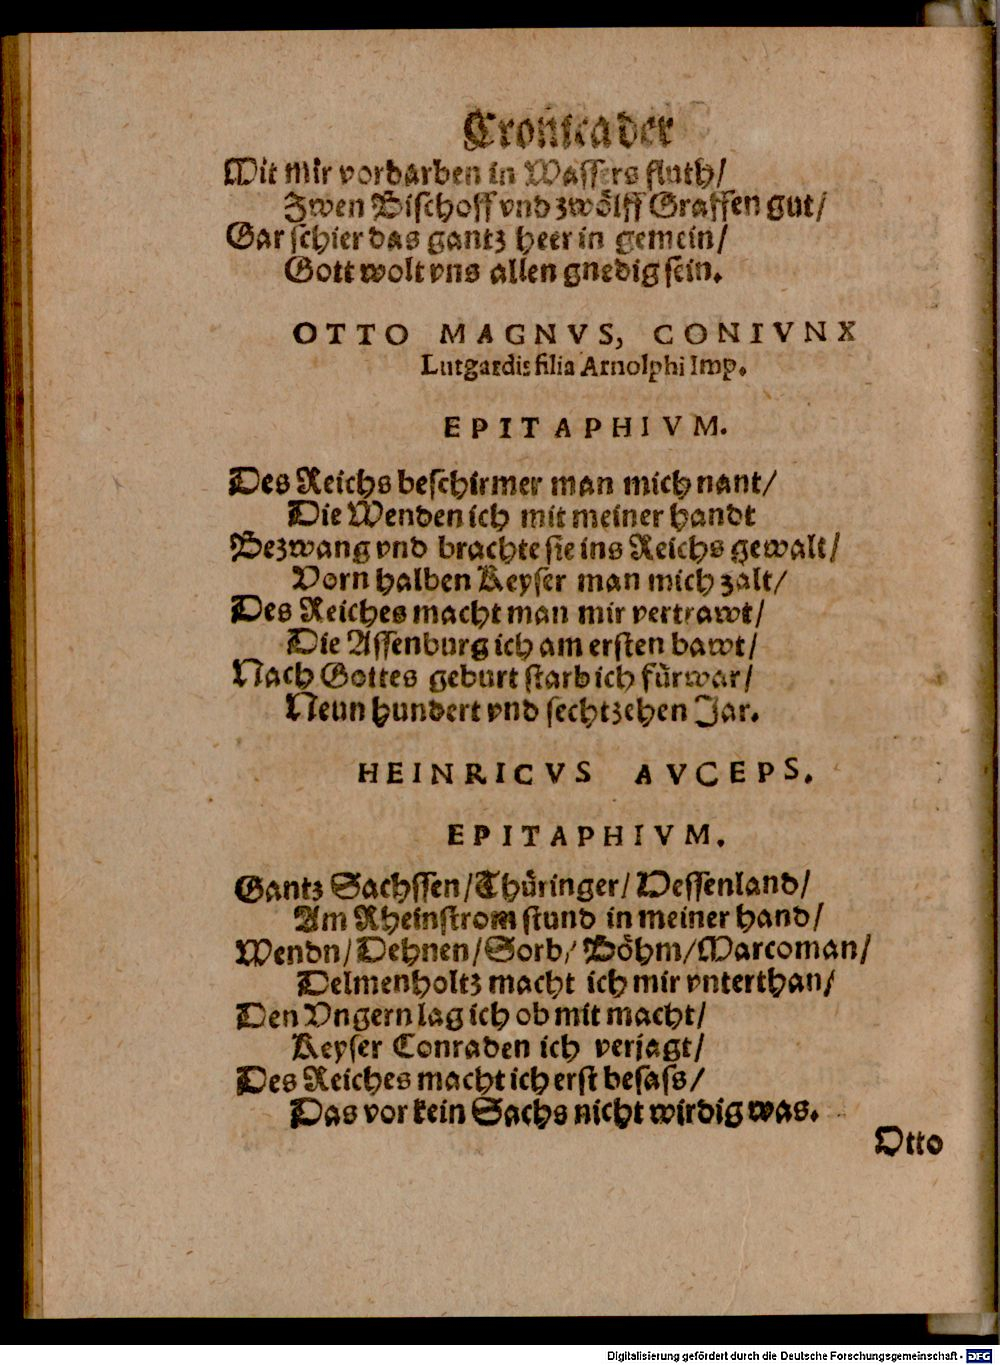 Cronica der
Mit mir vordarben in Wassers fluth/
Zwen Bischoff vnd zwölff Graffen gut/
Gar schier das gantz heer in gemein/
Gott wolt vns allen gnedig sein.
OTTO MAGNVS, CONIVNX
Lutgardis filia Arnolphi Imp.
EPITAPHIVM.
Des Reichs beschirmer man mich nant/
Die Wenden ich mit meiner handt
Bezwang vnd brachte sie ins Reichs gewalt/
Vorn halben Keyser man mich zalt/
Des Reiches macht man mir vertrawt/
Die Assenburg ich am ersten bawt/
Nach Gottes geburt starb ich fürwar/
Neun hundert vnd sechtzehen Jar.
HEINRICVS AVCEPS.
EPITAPHIVM.
Gantz Sachssen/Thüringer/Hessenland/
Am Rheinstrom stund in meiner hand/
Wendn/Dehnen/Sorb/Böhm/Marcoman/
Delmenholtz macht ich mir vnterthan/
Den Vngern lag ich ob mit macht/
Keyser Conraden ich verjagt/
Des Reiches macht ich erst besass/
Das vor kein Sachs nicht wirdig was.
Otto
Digitalisierung gefördert durch die Deutsche Forschungsgemeinschaft - DFG